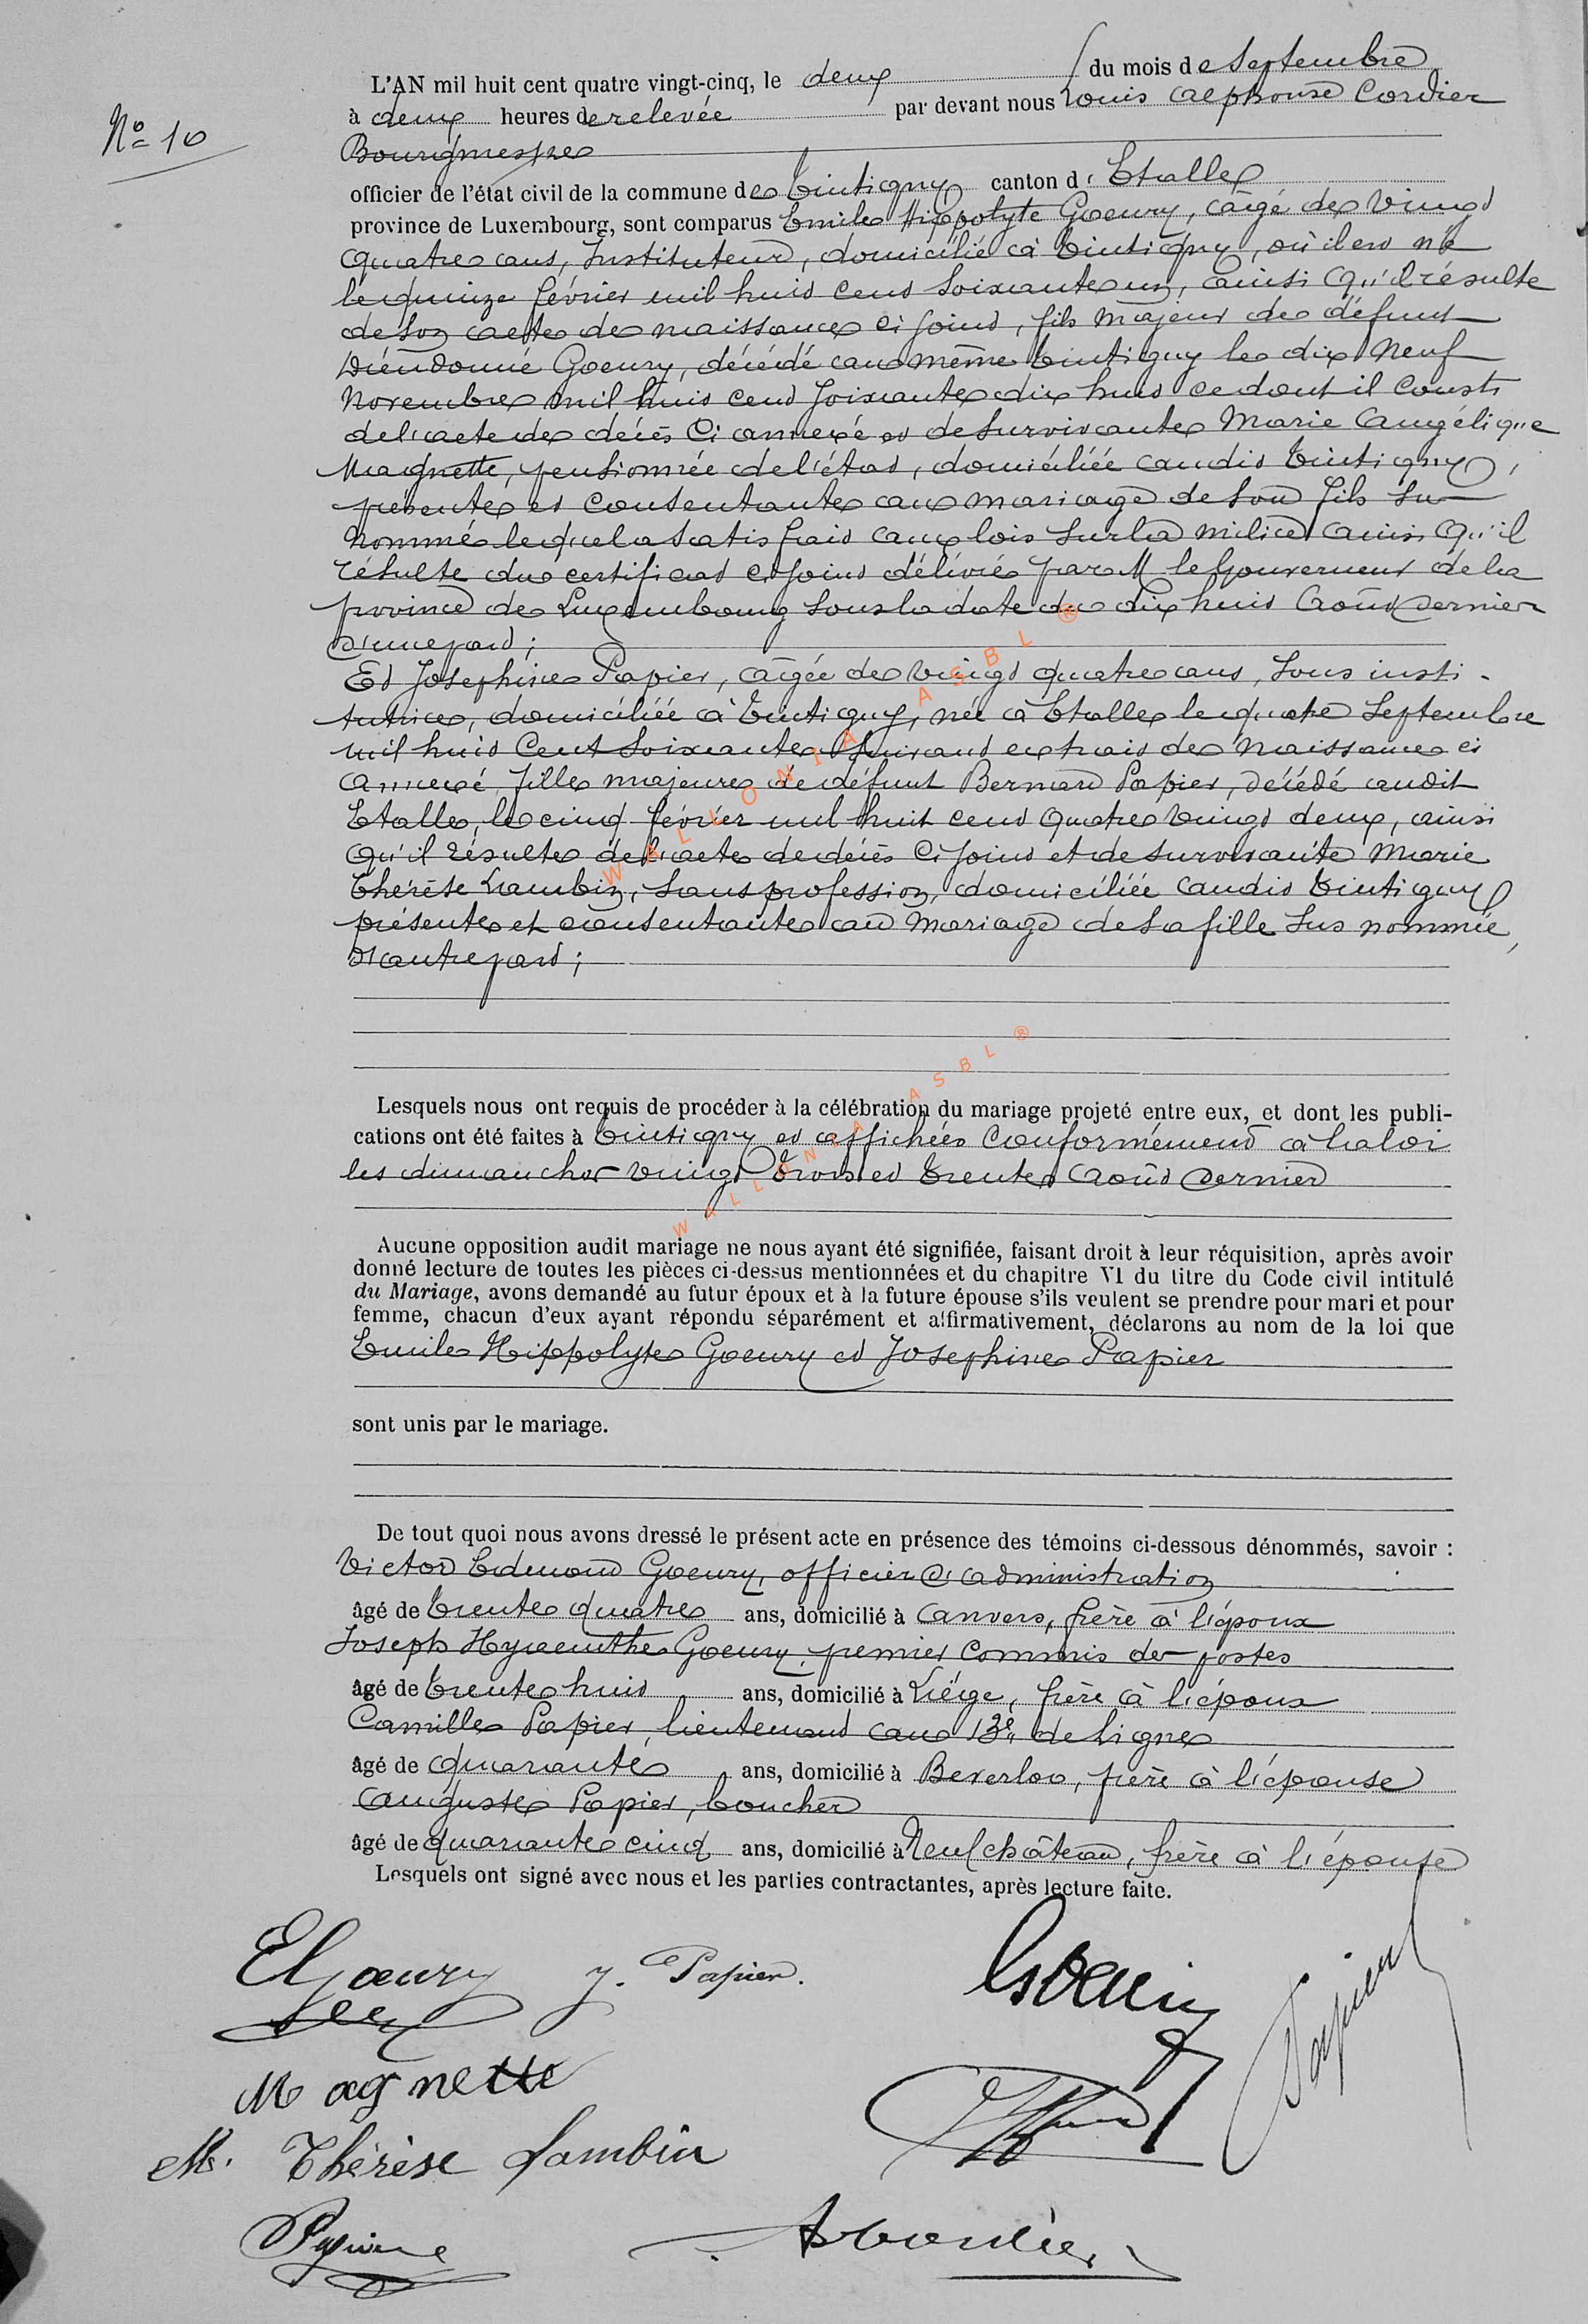 No 10
L'AN mil huit cent quatre vingt-cinq, le deux du mois de Septembre
à deux heures de relevée par devant nous Louis Alphonse Cordier
Bourgmestre
officier de l'état civil de la commune de Tintigny canton d' Etalle
province de Luxembourg, sont comparus Emile Hippolyte Goeury, âgé de vingt
quatre ans, Instituteur, domicilié à Tintigny, où il est né
le quinze février mil huit cent soixante un, ainsi qu'il résulte
de son acte de naissance ci joint, fils majeur de défunt
Dieudonné Goeury, décédé au même Tintigny le dix neuf
Novembre mil huit cent soixante dix huit ce dont il conste
de l'acte de décès ci annexé et de survivante Marie Angélique
Magnette, pensionnée de l'état, domiciliée audit Tintigny,
présente et consentante au mariage de son fils su
nommé lequel a satisfait aux lois sur la milice ainsi qu'il
résulte du certificat ci joint délivré par M le Gouverneur de la
province de Luxembourg sous la date du dix huit Août dernier
d'une part;
Et Josephine Papier, âgée de vingt quatre ans, sous insti-
tutrice, domiciliée à Tintigny, née à Etalle le quatre Septembre
mil huit cent soixante suivant extrait de naissance ci
annexé fille majeure de défunt Bernard Papier, décédé audit
Etalle, le cinq février mil huit cent quatre vingt deux, ainsi
qu'il résulte de l'acte de décès ci joint et de survivante Marie
Thérèse Lambin, sans profession, domiciliée audit Tintigny
présente et consentante au mariage de sa fille sus nommée,
d'autre part;
Lesquels nous ont requis de procéder à la célébration du mariage projeté entre eux, et dont les publi-
cations ont été faites à Tintigny et affichées conformément à la loi
les dimanches vingt trois et trente Août dernier
Aucune opposition audit mariage ne nous ayant été signifiée, faisant droit à leur réquisition, après avoir
donné lecture de toutes les pièces ci-dessus mentionnées et du chapitre VI du titre du Code civil intitulé
du Mariage, avons demandé au futur époux et à la future épouse s'ils veulent se prendre pour mari et pour
femme, chacun d'eux ayant répondu séparément et affirmativement, déclarons au nom de la loi que
Emile Hippolyte Goeury et Josephine Papier
sont unis par le mariage.
De tout quoi nous avons dressé le présent acte en présence des témoins ci-dessous dénommés, savoir :
Victor Edmond Goeury, officier d'administration
âgé de trente quatre ans, domicilié à Anvers, frère à l'époux
Joseph Hyacinthe Goeury, premier commis des postes
âgé de trente huit ans, domicilié à Liége, frère à l'époux
Camille Papier, lieutenant au 13e de Ligne
âgé de quarante ans, domicilié à Beverloo, frère à l'épouse
Auguste Papier, boucher
âgé de quarante cinq ans, domicilié à Neufchâteau, frère à l'épouse
Lesquels ont signé avec nous et les parties contractantes, après lecture faite.
EGoeury J. Papier.
Papier
Magnette
M. Thérèse Lambin
Papier
A Cordier
WALLONIA ASBL ®
WALLONIA ASBL ®